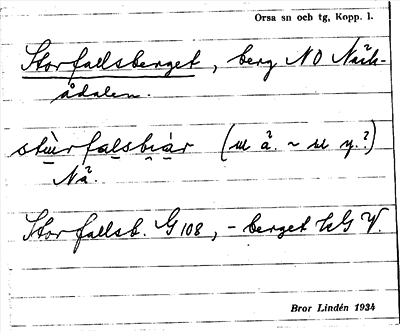 Orsa sn och tg, Kopp. l.
Storfallsberget, berg NO Näck-
ådalen.
stùrfalsbiàr (m å. ~ m y.?)
Nå.
Storfallsb. G 108, - berget
Bror Lindén 1934